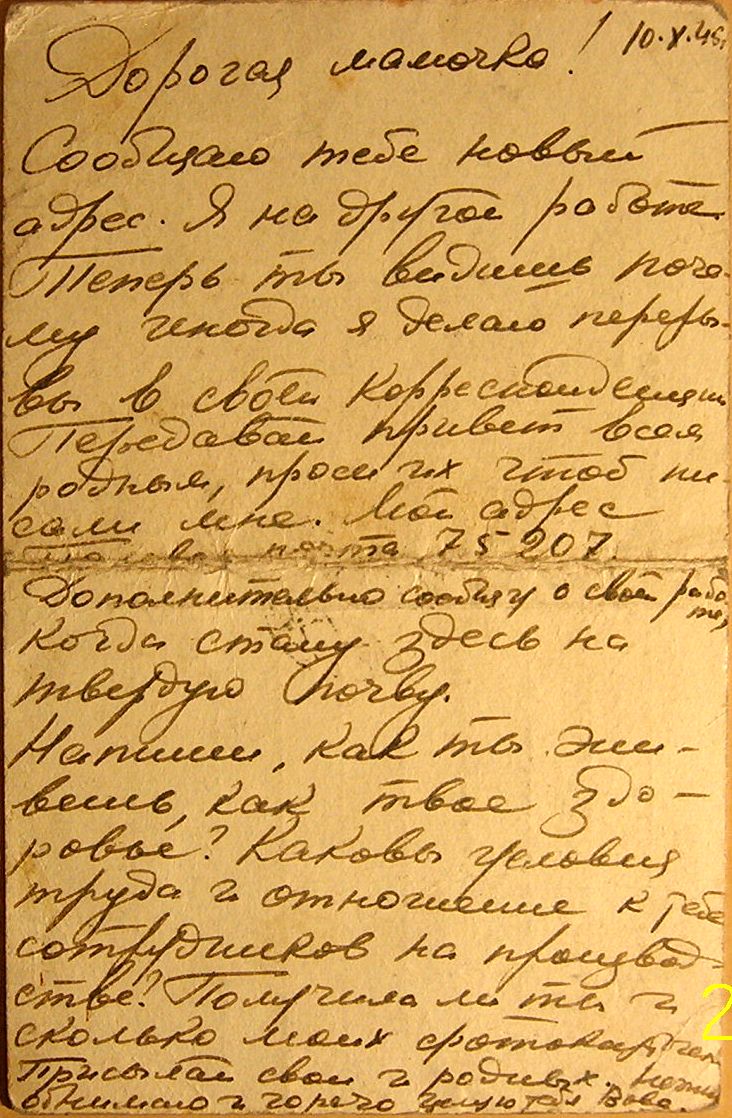 10.X.45г.
Дорогая мамочка!
Сообщаю тебе новый
адрес. Я на другой работе.
Теперь ты видишь поче-
му иногда я делаю переры-
вы в своей корреспонденции
Передавай привет всем
родным, проси их чтоб пи-
сали мне. Мой адрес
почта 75207.
Дополнительно сообщу о своей рабо-
те,
когда стану здесь на
твердую почву.
Напиши, как ты жи-
вешь, как твое здо-
ровье? Каковы условия
труда и отношение к тебе
сотрудников на производ-
стве? Получила ли ты и
сколько моих фотокарточек
Присылай свои и родных.
обнимаю и горячо целую тебя Вова
2